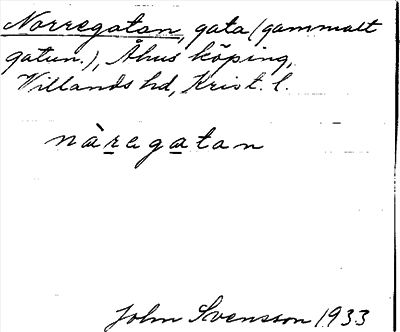 Norregatan, gata (gammalt
gatun.), Åhus köping,
Villands hd, Krist. l.
nàregatan
John Svensson 1933